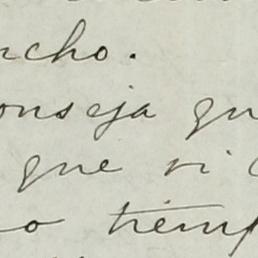 ncho.
onseja qu
que vi
o tiemp